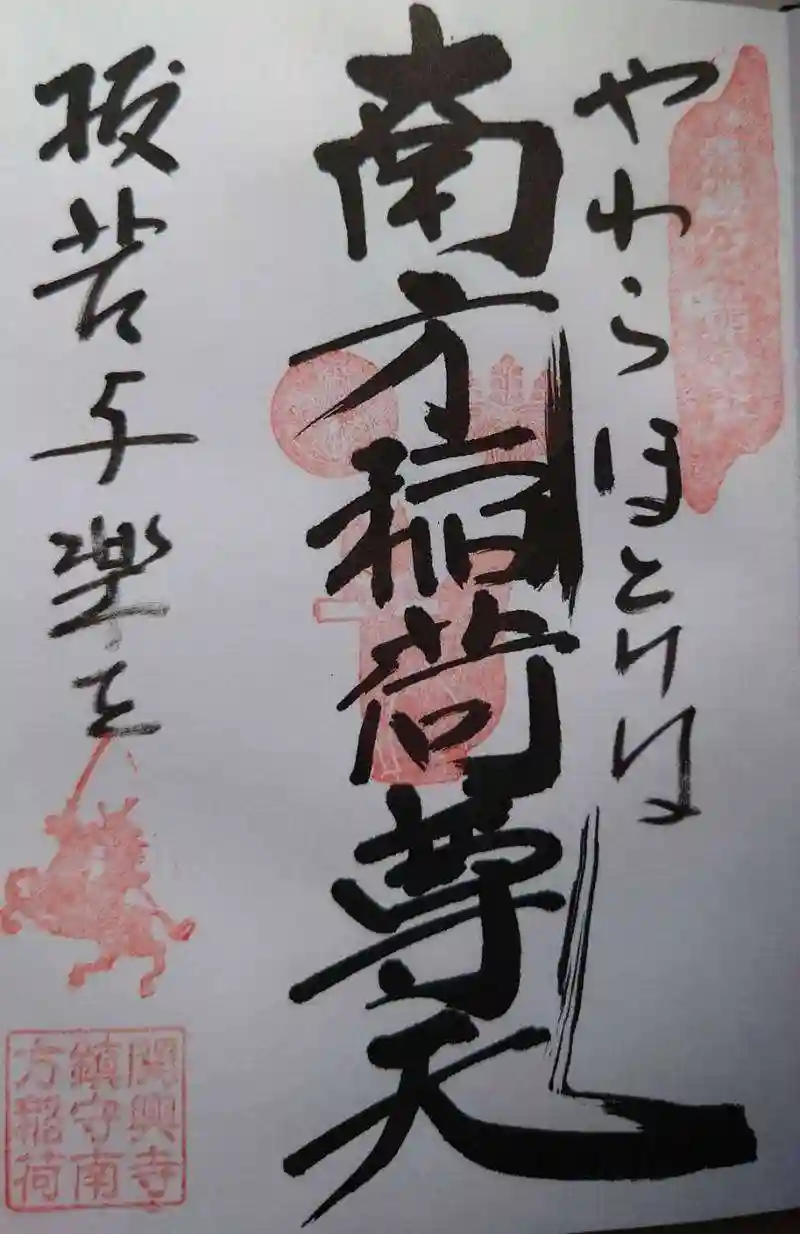 やわらほとけは
南方稲荷尊天
抜苦与楽を
関興寺
鎮守南
方稲荷